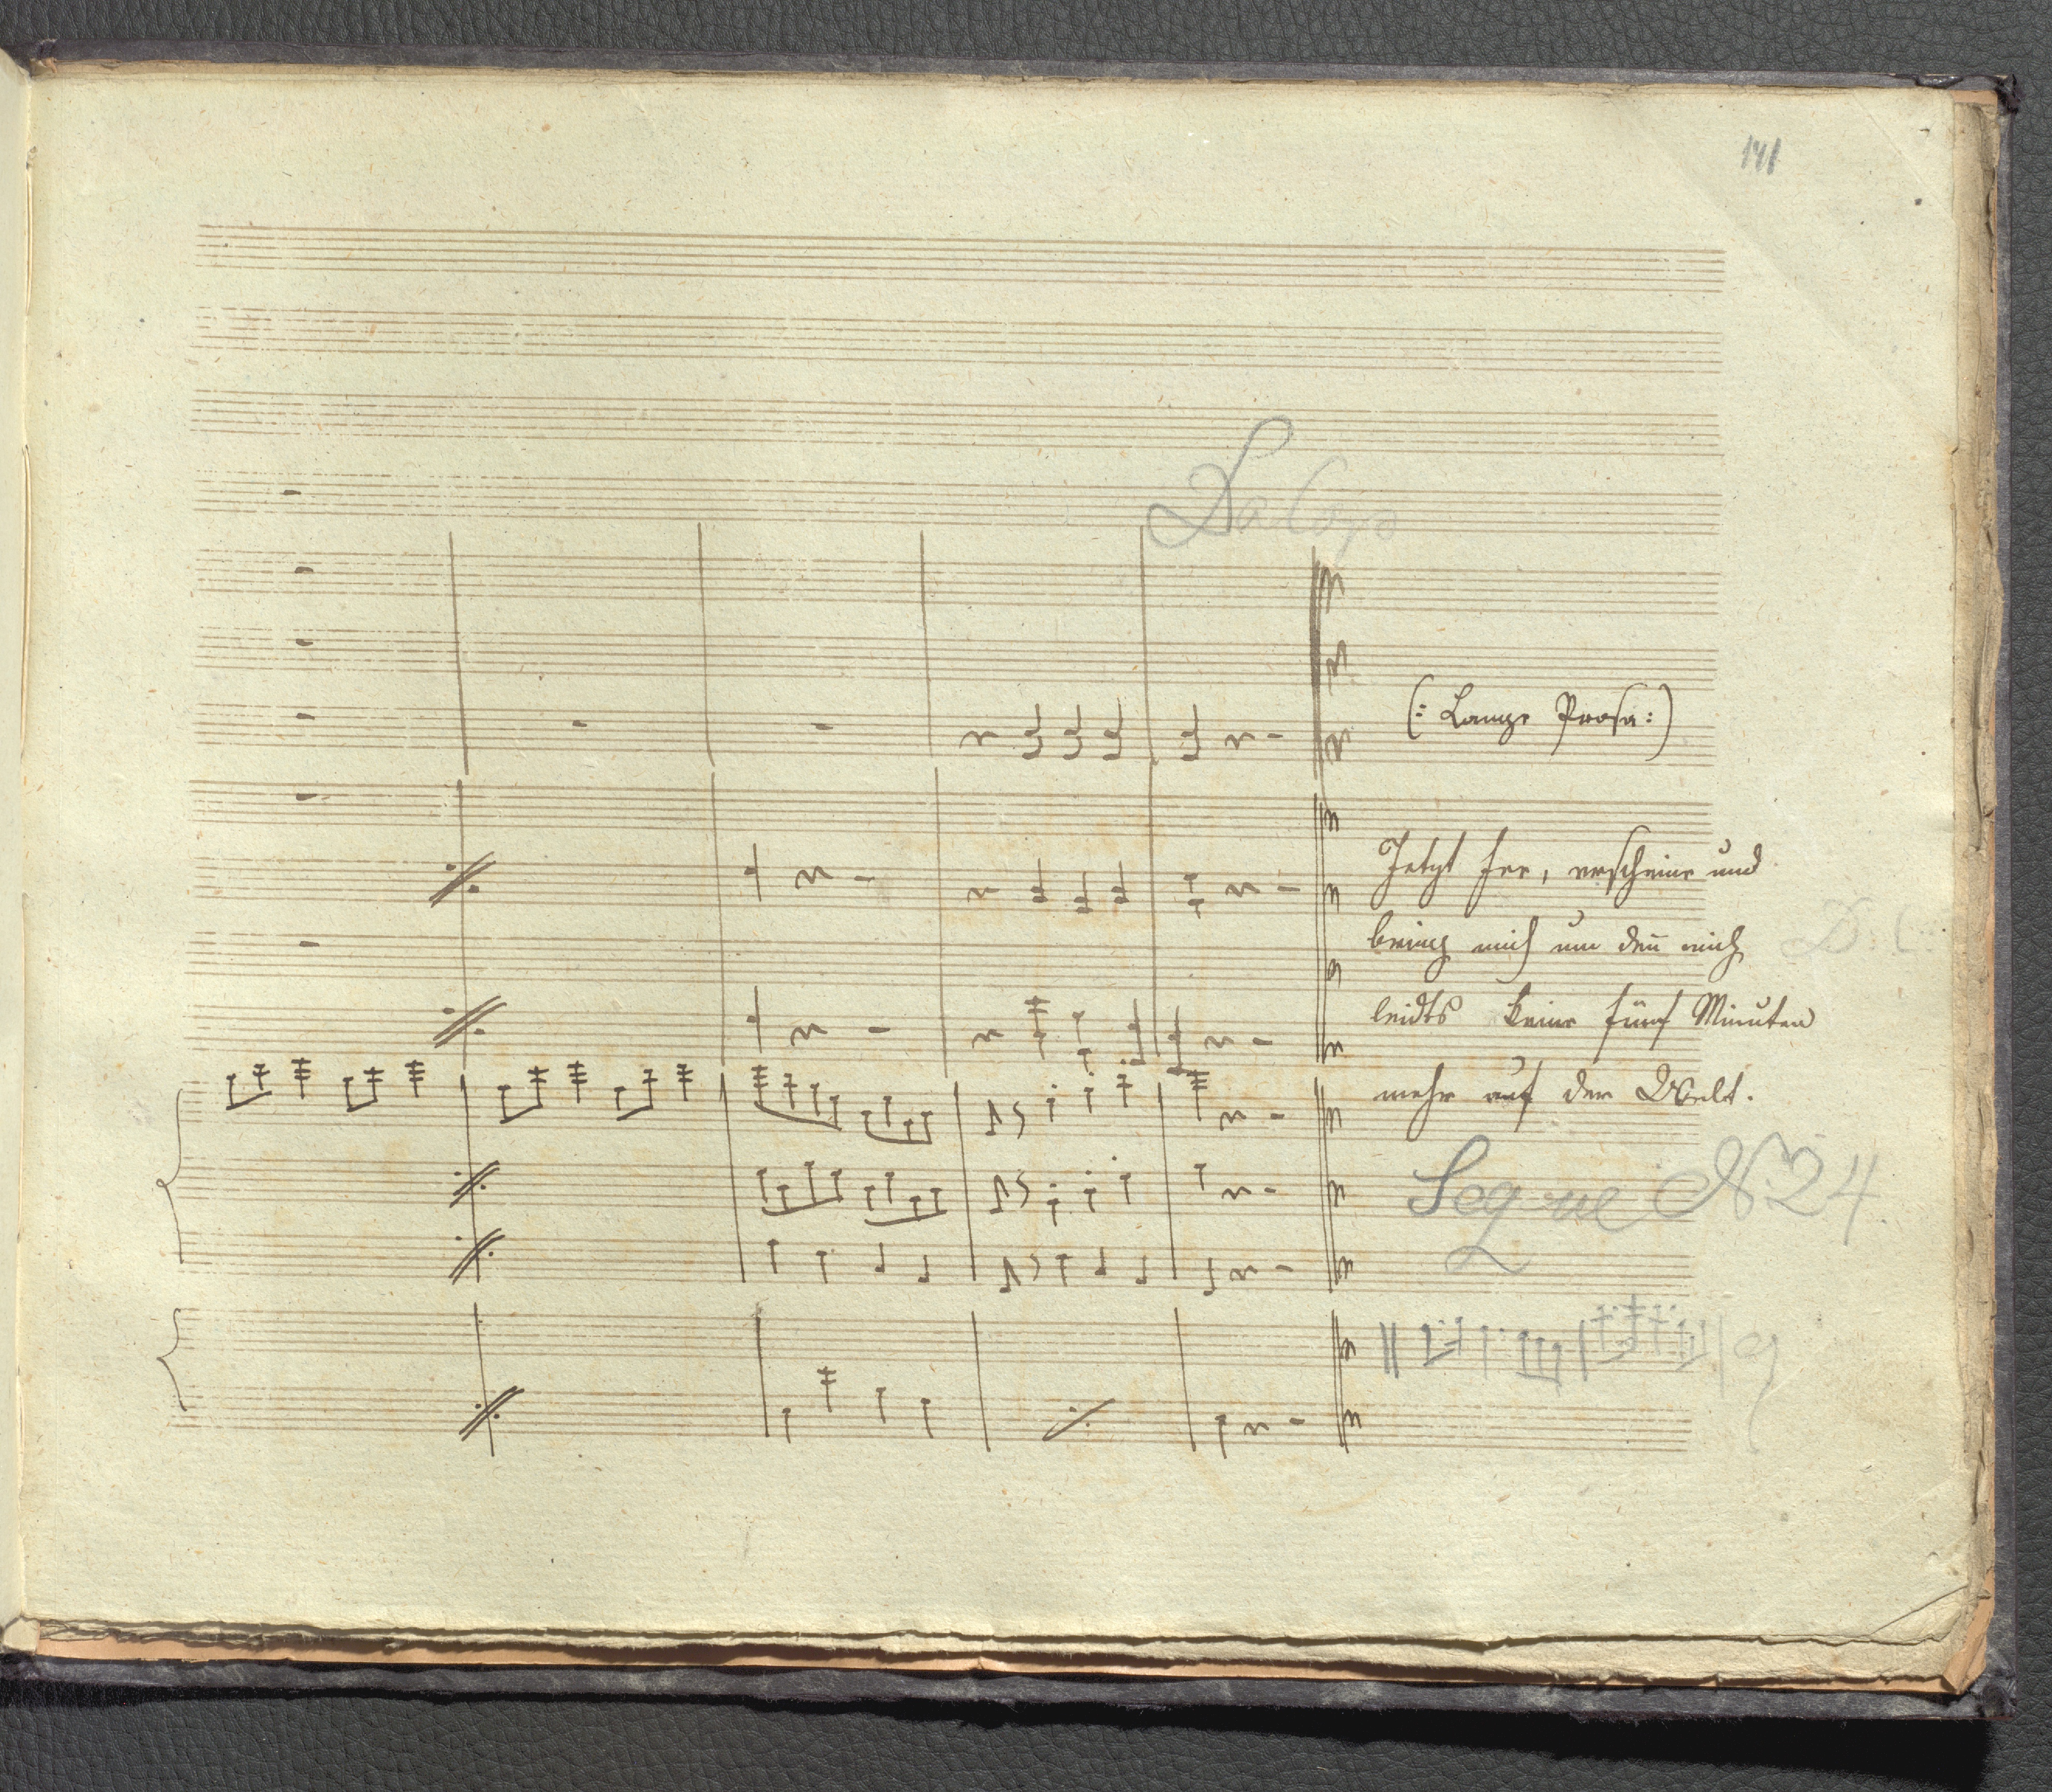 141
Da Capo
(: Lange Prosa :)
Jetzt Fee, erscheine und
bring mich um den̄ mich
leidts keine fünf Minuten
mehr auf der Welt.
Segue N 24